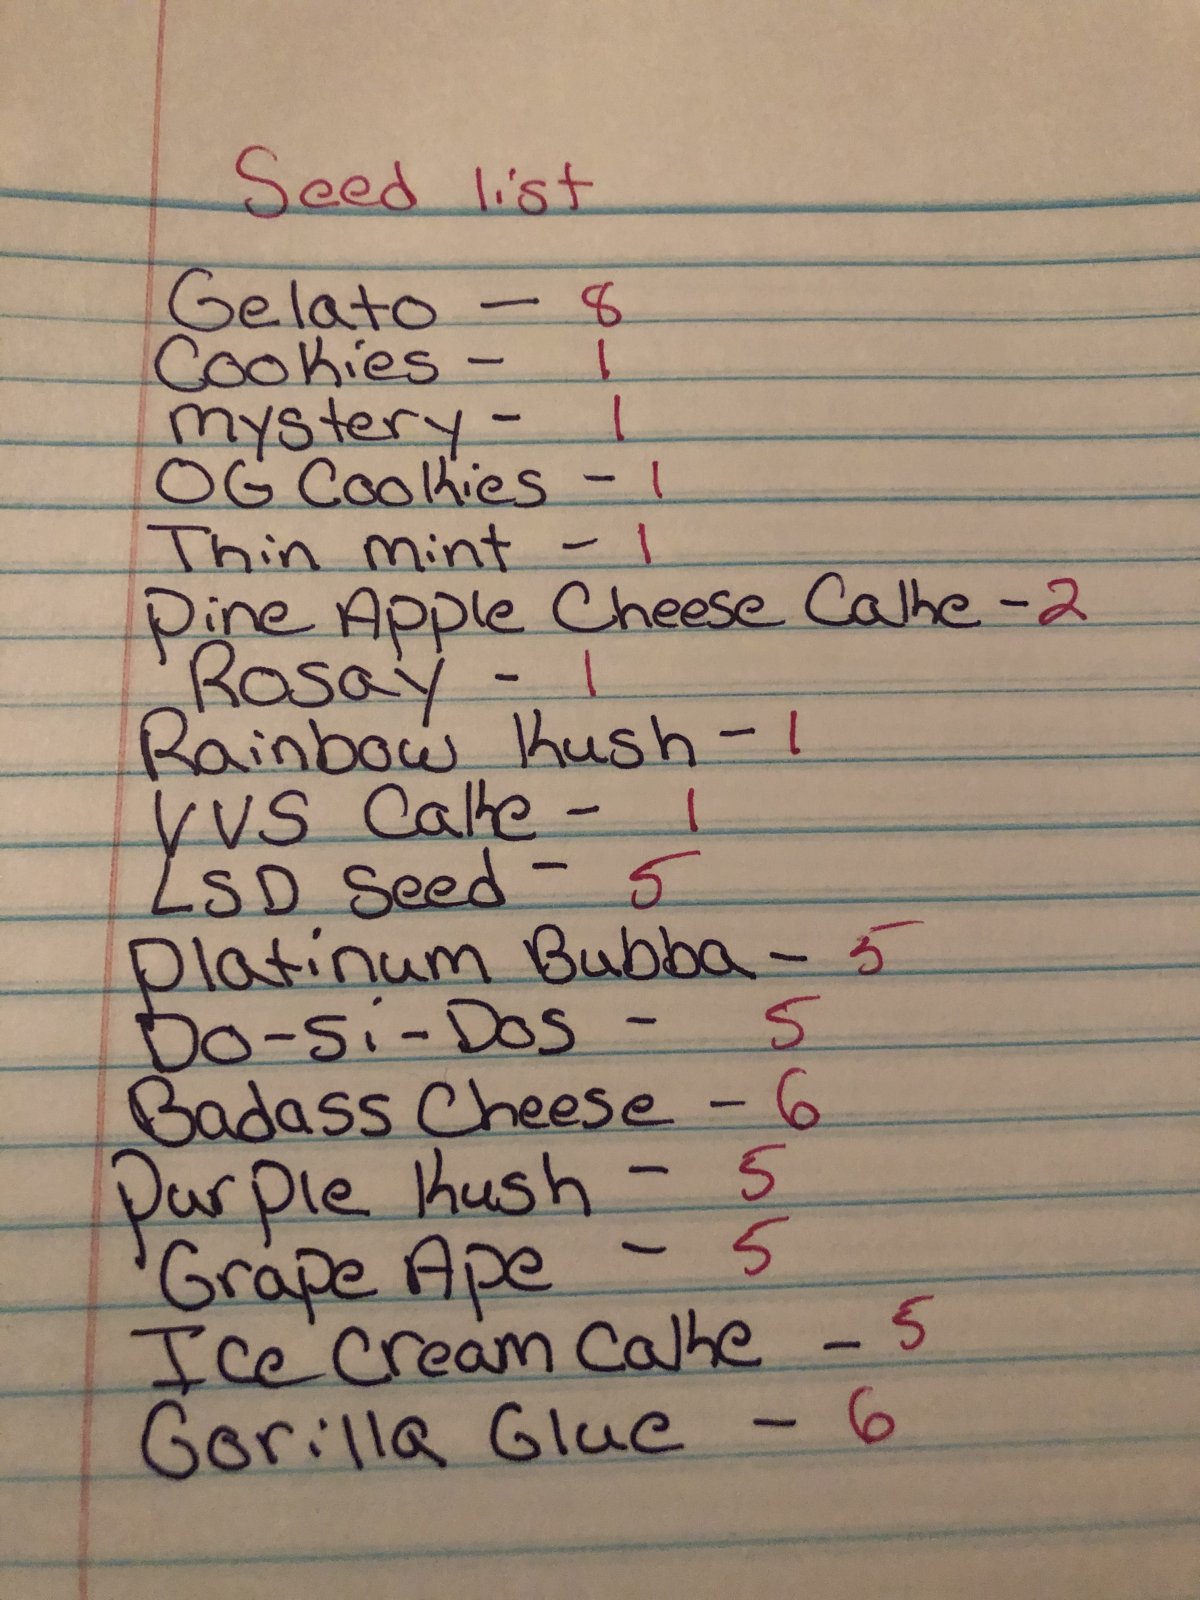 Seed list
Gelato - 8
Cookies - 1
mystery - 1
OG Cookies - 1
Thin mint - 1
Pine Apple Cheese Cake - 2
Rosay - 1
Rainbow Kush - 1
VVS Cake - 1
LSD Seed - 5
Platinum Bubba - 5
Do-Si-Dos - 5
Badass Cheese - 6
Purple Kush - 5
Grape Ape - 5
Ice Cream Cake - 5
Gorilla Glue - 6